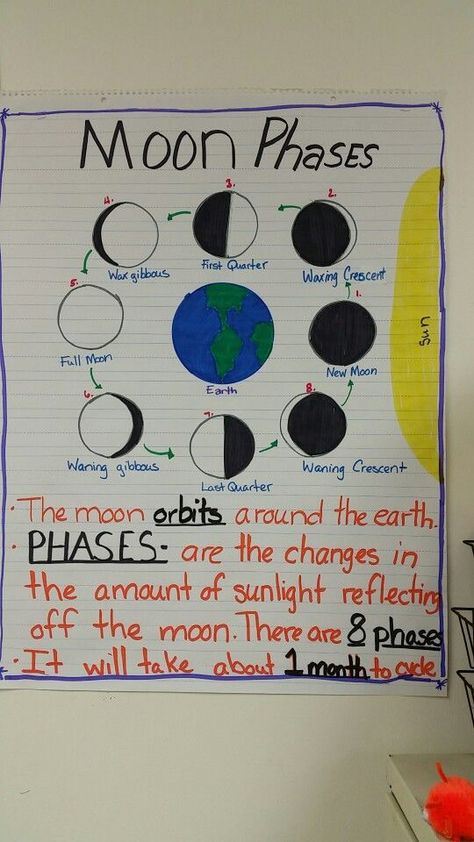 Moon Phases
4.
3.
2.
Wax gibbous
First Quarter
Waxing Crescent
5.
1.
Sun
Full Moon
Earth
New Moon
6.
7.
8.
Waning gibbous
Last Quarter
Waning Crescent
· The moon orbits around the earth.
· PHASES- are the changes in
the amount of sunlight reflecting
off the moon. There are 8 phases
· It will take about 1 month to cycle